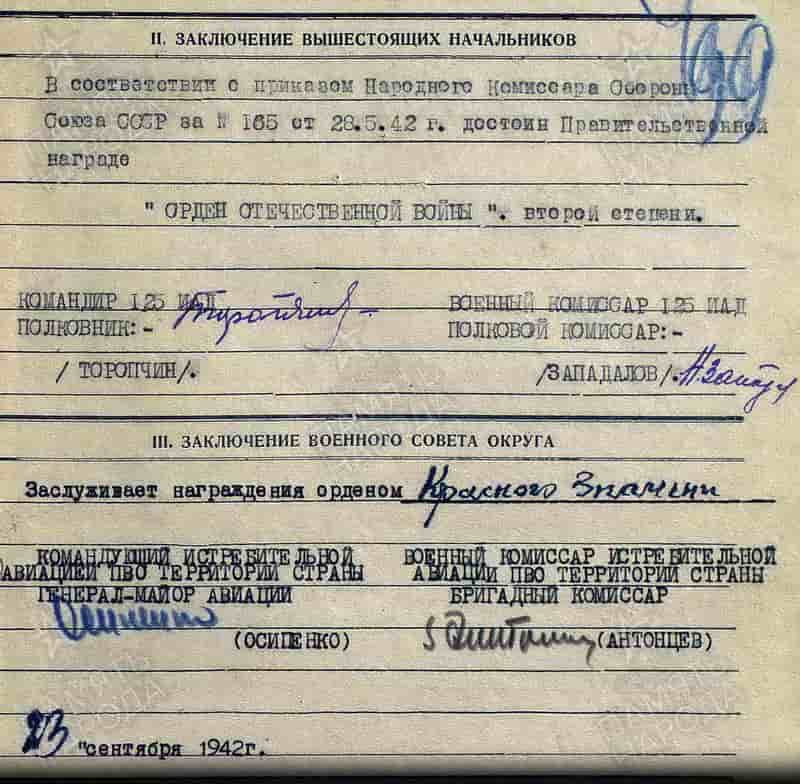 99
II. ЗАКЛЮЧЕНИЕ ВЫШЕСТОЯЩИХ НАЧАЛЬНИКОВ
В соответствии с приказом Народного Комиссара Обороны
Союза ССР за № 165 от 28.5.42 г. достоин Правительственной
награде
" ОРДЕН ОТЕЧЕСТВЕННОЙ ВОЙНЫ ". второй степени.
КОМАНДИР 125 ИАД ВОЕННЫЙ КОМИССАР 125 ИАД
ПОЛКОВНИК:- ПОЛКОВОЙ КОМИССАР:-
/ ТОРОПЧИН/. /ЗАПАДАЛОВ/.
III. ЗАКЛЮЧЕНИЕ ВОЕННОГО СОВЕТА ОКРУГА
Заслуживает награждения орденом Красного Знамени
КОМАНДУЮЩИЙ ИСТРЕБИТЕЛЬНОЙ ВОЕННЫЙ КОМИССАР ИСТРЕБИТЕЛЬНОЙ
АВИАЦИЕЙ ПВО ТЕРРИТОРИИ СТРАНЫ АВИАЦИИ ПВО ТЕРРИТОРИИ СТРАНЫ
ГЕНЕРАЛ-МАЙОР АВИАЦИИ БРИГАДНЫЙ КОМИССАР
(ОСИПЕНКО) (АНТОНЦЕВ)
23 "сентября 1942г.
ПАМЯТЬ НАРОДА